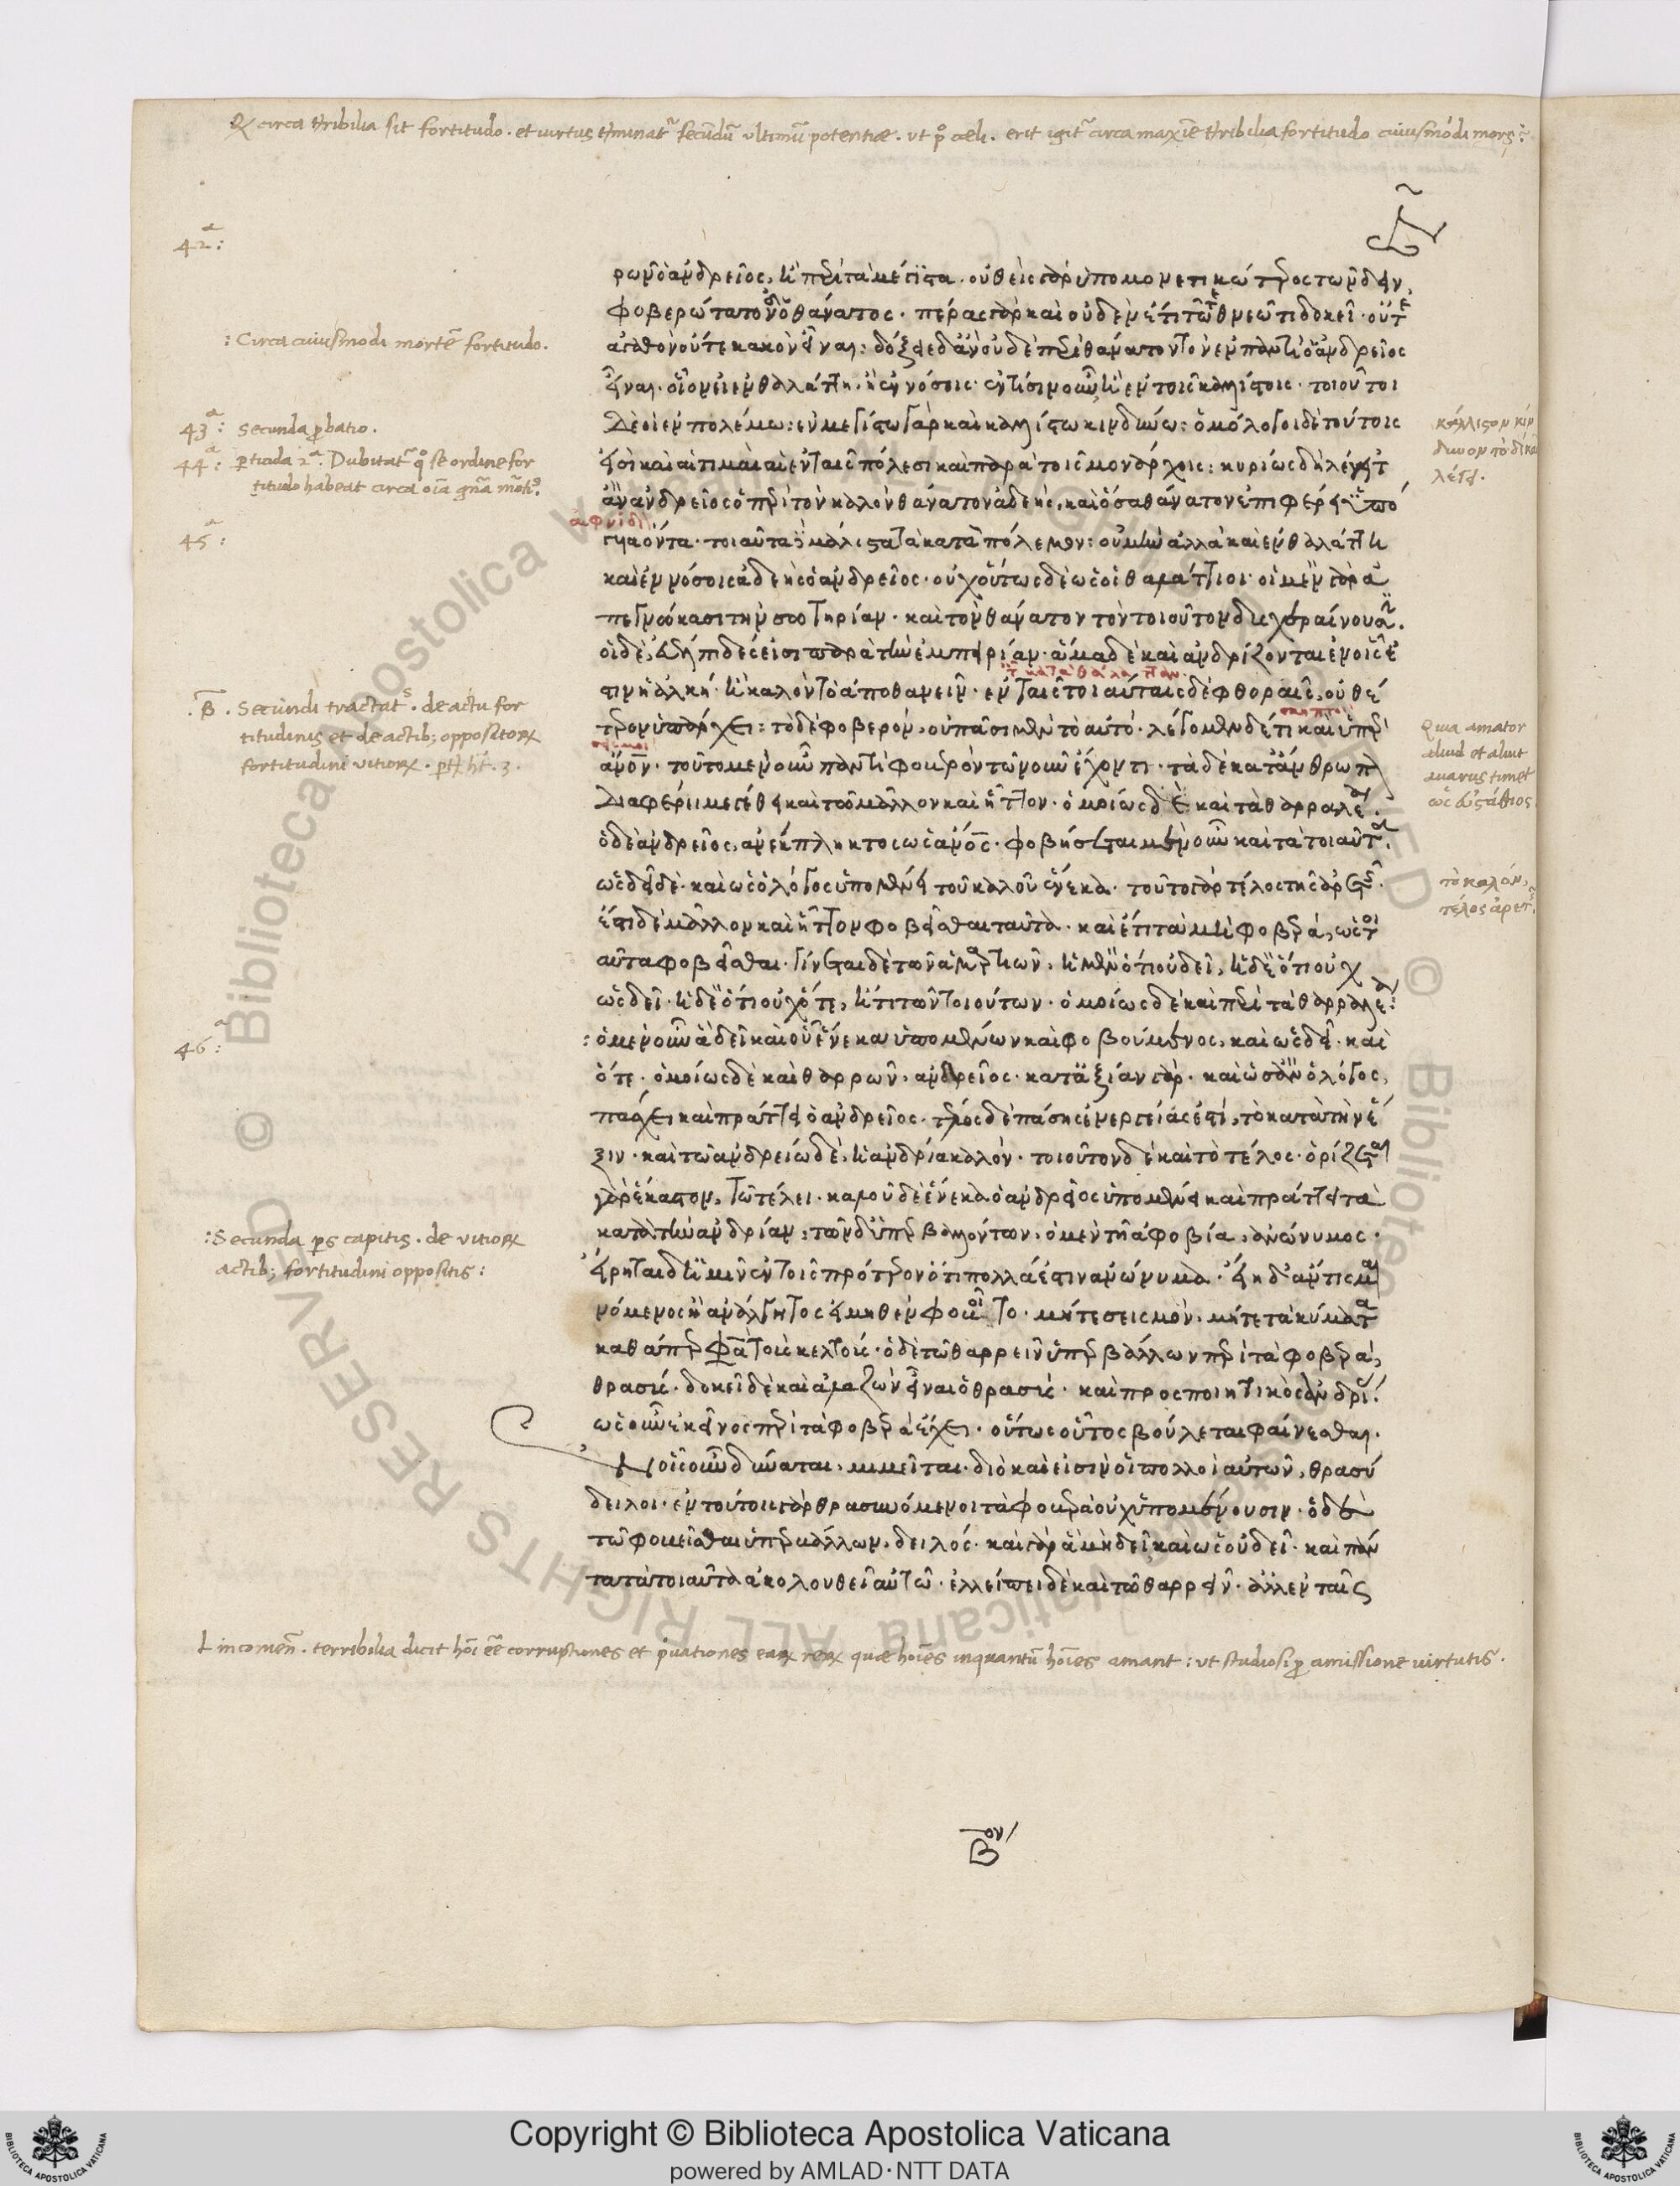 Q circa tribilia sit fortitudo. et virtus tminat secundu ultimu potentiae. ut po caeli. erit igit circa maxie tribilia fortitudo cuiusmodi mors.
42a:
ρων ὁ ἀνδρεῖος, ἢ περὶ τὰ μέγιστα. οὐθεὶς γὰρ ὑπομονετικώτερος τῶν δειν.
φοβερώτατον δ' ὁ θάνατος. πέρας γὰρ καὶ οὐδὲν ἔτι τῶ τεθνεῶτι δοκεῖ. οὔτε
: Circa cuiusmodi mortē fortitudo.
ἀγαθὸν οὔτε κακὸν εἶναι: δόξειε δ' ἂν οὐδὲ περὶ θάνατον τὸν ἐν παντὶ ὁ ἀνδρεῖος
εἶναι. οἷον εἰ ἐν θαλάττη. ἢ ἐν νόσοις. ἐν τίσιν οὖν ἢ ἐν τοῖς καλλίστοις. τοιοῦτοι
43a: Secunda pbatio.
δὲ οἱ ἐν πολέμω: ἐν μεγίστω γὰρ καὶ καλλίστω κινδύνω: ὁμόλογοι δὲ τούτοις
κάλλιστον κίν
δυνον τὸ δίκαι
λέγει.
44a: pticula 2a. Dubitat qo se ordine for
titudo habeat circa oia gna moti.
εἰσὶ καὶ αἱ τιμαὶ αἱ ἐν ταῖς πόλεσι καὶ παρὰ τοῖς μονάρχοις: κυρίως δὴ λέγοιτ
ἂν ἀνδρεῖος ὁ περὶ τὸν καλὸν θάνατον ἀδεής, καὶ ὅσα θάνατον ἐπιφέρει ὑπό
ἀφνίδι
45a:
γυια ὄντα. τοιαῦτα δὲ μάλιστα τὰ κατὰ πόλεμον: οὐ μὴν ἀλλὰ καὶ ἐν θαλάττη
καὶ ἐν νόσοις ἀδεὴς ὁ ἀνδρεῖος. οὐχ οὕτως δὲ ὡς οἱ θαλάττιοι. οἱ μὲν γὰρ ἀ
πεγνώκασι τὴν σωτηρίαν. καὶ τὸν θάνατον τὸν τοιοῦτον δυσχεραίνουσιν.
οἱ δὲ, εὐέλπιδές εἰσι παρὰ τὴν ἐμπειρίαν. ἅμα δὲ καὶ ἀνδρίζονται ἐν οἷς ἐ
κατὰ θάλατταν.
.B. Secundi tractats. de actu for
titudinis et de actib; oppositorx
fortitudini vitiorx.
στιν ἡ ἀλκή. ἢ καλὸν τὸ ἀποθανεῖν. ἐν ταῖς τοιαύταις δὲ φθοραῖς, οὐθέ
τερον ὑπάρχει: τὸ δὲ φοβερὸν, οὐ πᾶσι μὲν τὸ αὐτό. λέγομεν δέ τι καὶ ὑπὲρ
Quia amator
aliud et aliut
avarus timet
ὡς εὐστάθιος
ἄνον. τοῦτο μὲν οὖν παντὶ φοβερὸν τῶ νοῦν ἔχοντι. τὰ δὲ κατ' ἄνθρωπον
διαφέρει μεγέθει καὶ τῶ μᾶλλον καὶ ἧττον. ὁμοίως δὲ καὶ τὰ θαρραλέα.
ὁ δὲ ἀνδρεῖος, ἀνέκπληκτος ὡς ἄνος. φοβήσεται μὲν οὖν καὶ τὰ τοιαῦτα.
ὡς δεῖ δὲ. καὶ ὡς ὁ λόγος ὑπομενεῖ τοῦ καλοῦ ἕνεκα. τοῦτο γὰρ τέλος τῆς ἀρετῆς.
τὸ καλὸν,
τέλος ἀρετῆς
ἔστι δὲ μᾶλλον καὶ ἧττον φοβεῖσθαι ταῦτα. καὶ ἔτι τὰ μὴ φοβερὰ, ὡς τοι
αῦτα φοβεῖσθαι. γίνεται δὲ τῶν ἁμαρτιῶν, ἡ μὲν ὅτι οὐ δεῖ, ἡ δὲ ὅτι οὐχ
ὡς δεῖ. ἡ δὲ ὅτι οὐχ ὅτε, ἤ τι τῶν τοιούτων. ὁμοίως δὲ καὶ περὶ τὰ θαρραλέα:
46a:
: ὁ μὲν οὖν ἃ δεῖ καὶ οὗ ἕνεκα ὑπομένων καὶ φοβούμενος, καὶ ὡς δεῖ. καὶ
ὅτε. ὁμοίως δὲ καὶ θαρρῶν. ἀνδρεῖος. κατ' ἀξίαν γὰρ. καὶ ὡς ἂν ὁ λόγος,
πάσχει καὶ πράττει ὁ ἀνδρεῖος. τέλος δὲ πάσης ἐνεργείας ἐστί, τὸ κατὰ τὴν ἕ
ξιν. καὶ τῶ ἀνδρείω δὲ, ἡ ἀνδρία καλόν. τοιοῦτον δὲ καὶ τὸ τέλος. ὁρίζεται
γὰρ ἕκαστον, τῶ τέλει. καλοῦ δὲ ἕνεκα ὁ ἀνδρεῖος ὑπομένει καὶ πράττει τὰ
: Secunda ps capitis. de vitiorx
actib; fortitudini oppositis:
κατὰ τὴν ἀνδρίαν: τῶν δ' ὑπερβαλλόντων, ὁ μὲν τῆ ἀφοβία, ἀνώνυμος.
εἴρηται δ' ἡμῖν ἐν τοῖς πρότερον ὅτι πολλά ἐστιν ἀνώνυμα. εἴη δ' ἄν τις μαι
νόμενος ἢ ἀνάλγητος εἰ μηθὲν φοβοῖτο. μήτε σεισμὸν, μήτε τὰ κύματα
καθάπερ φασὶ τοὺς κελτούς. ὁ δὲ τῶ θαρρεῖν ὑπερβάλλων περὶ τὰ φοβερὰ,
θρασύς. δοκεῖ δὲ καὶ ἀλαζὼν εἶναι ὁ θρασύς. καὶ προσποιητικὸς ἀνδρί.
ὡς οὖν ἐκεῖνος περὶ τὰ φοβερὰ ἔχει. οὕτως οὗτος βούλεται φαίνεσθαι.
ἐν οἷς οὖν δύναται, μιμεῖται. διὸ καὶ εἰσὶν οἱ πολλοὶ αὐτῶν, θρασύ
δειλοι. ἐν τούτοις γὰρ θρασυνόμενοι τὰ φοβερὰ οὐχ ὑπομένουσιν. ὁ δὲ
τῶ φοβεῖσθαι ὑπερβάλλων, δειλός. καὶ γὰρ ἃ μὴ δεῖ καὶ ὡς οὐ δεῖ. καὶ πάν
τα τὰ τοιαῦτα ἀκολουθεῖ αὐτῶ. ἐλλείπει δὲ καὶ τῶ θαρρεῖν. ἀλλ' ἐν ταῖς
L in comen. terribilia dicit hoi ee corruptiones et pvationes earx rerx quae hoies inquantu hoies amant: ut studiosi p amissione virtutis.
Βον
Copyright © Biblioteca Apostolica Vaticana
powered by AMLAD·NTT DATA
BIBLIOTECA APOSTOLICA VATICANA
BIBLIOTECA APOSTOLICA VATICANA